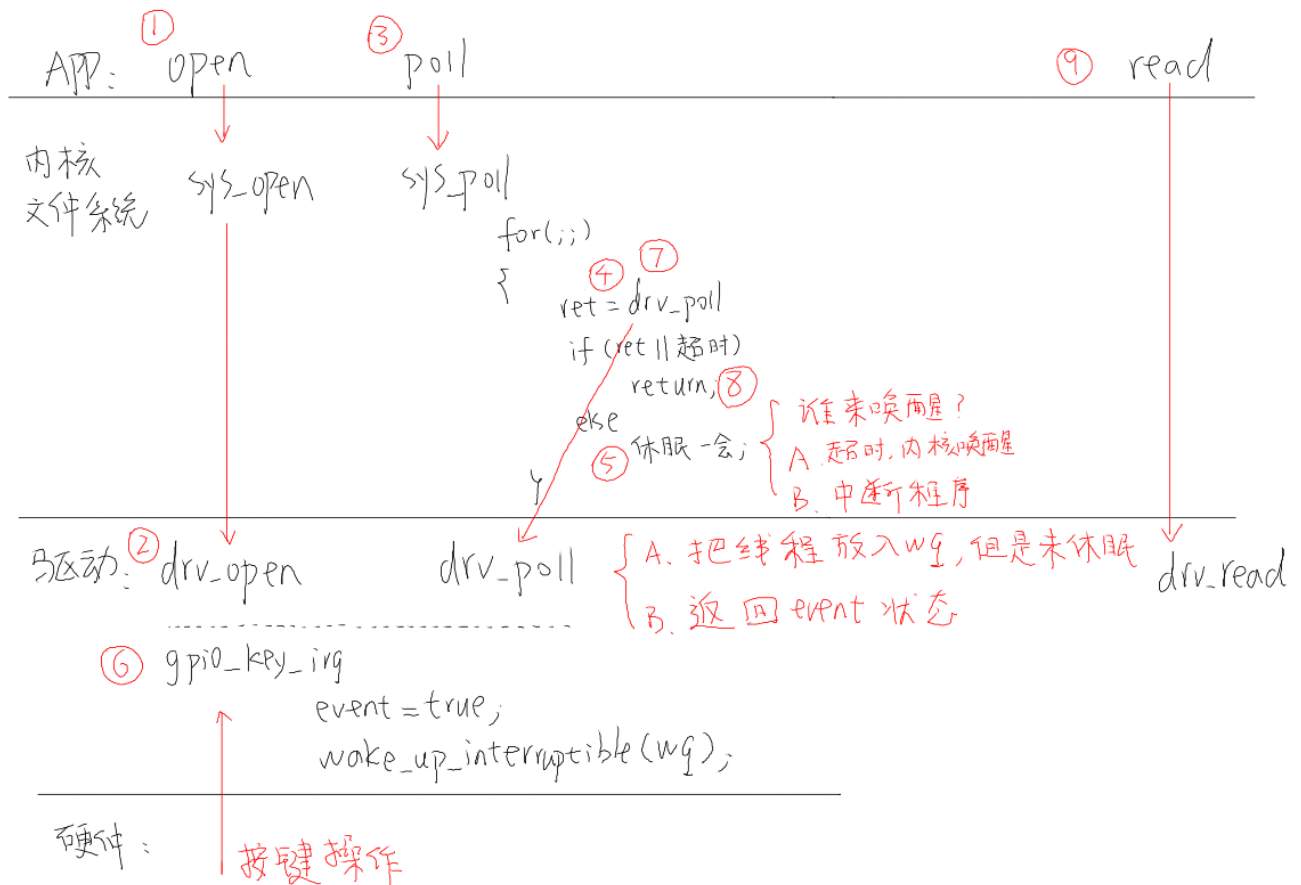 ① ③
APP: open poll ⑨ read
内核
文件系统 sys_open sys_poll
for(;;)
{ ④ ⑦
ret = drv_poll
if (ret || 超时)
return; ⑧
else
⑤ 休眠一会;
谁来唤醒?
A. 超时, 内核唤醒
B. 中断程序
驱动: ② drv_open drv_poll drv_read
A. 把线程放入wq, 但是未休眠
B. 返回 event 状态
⑥ gpio_key_irq
event = true;
wake_up_interruptible(wq);
硬件: 按键操作